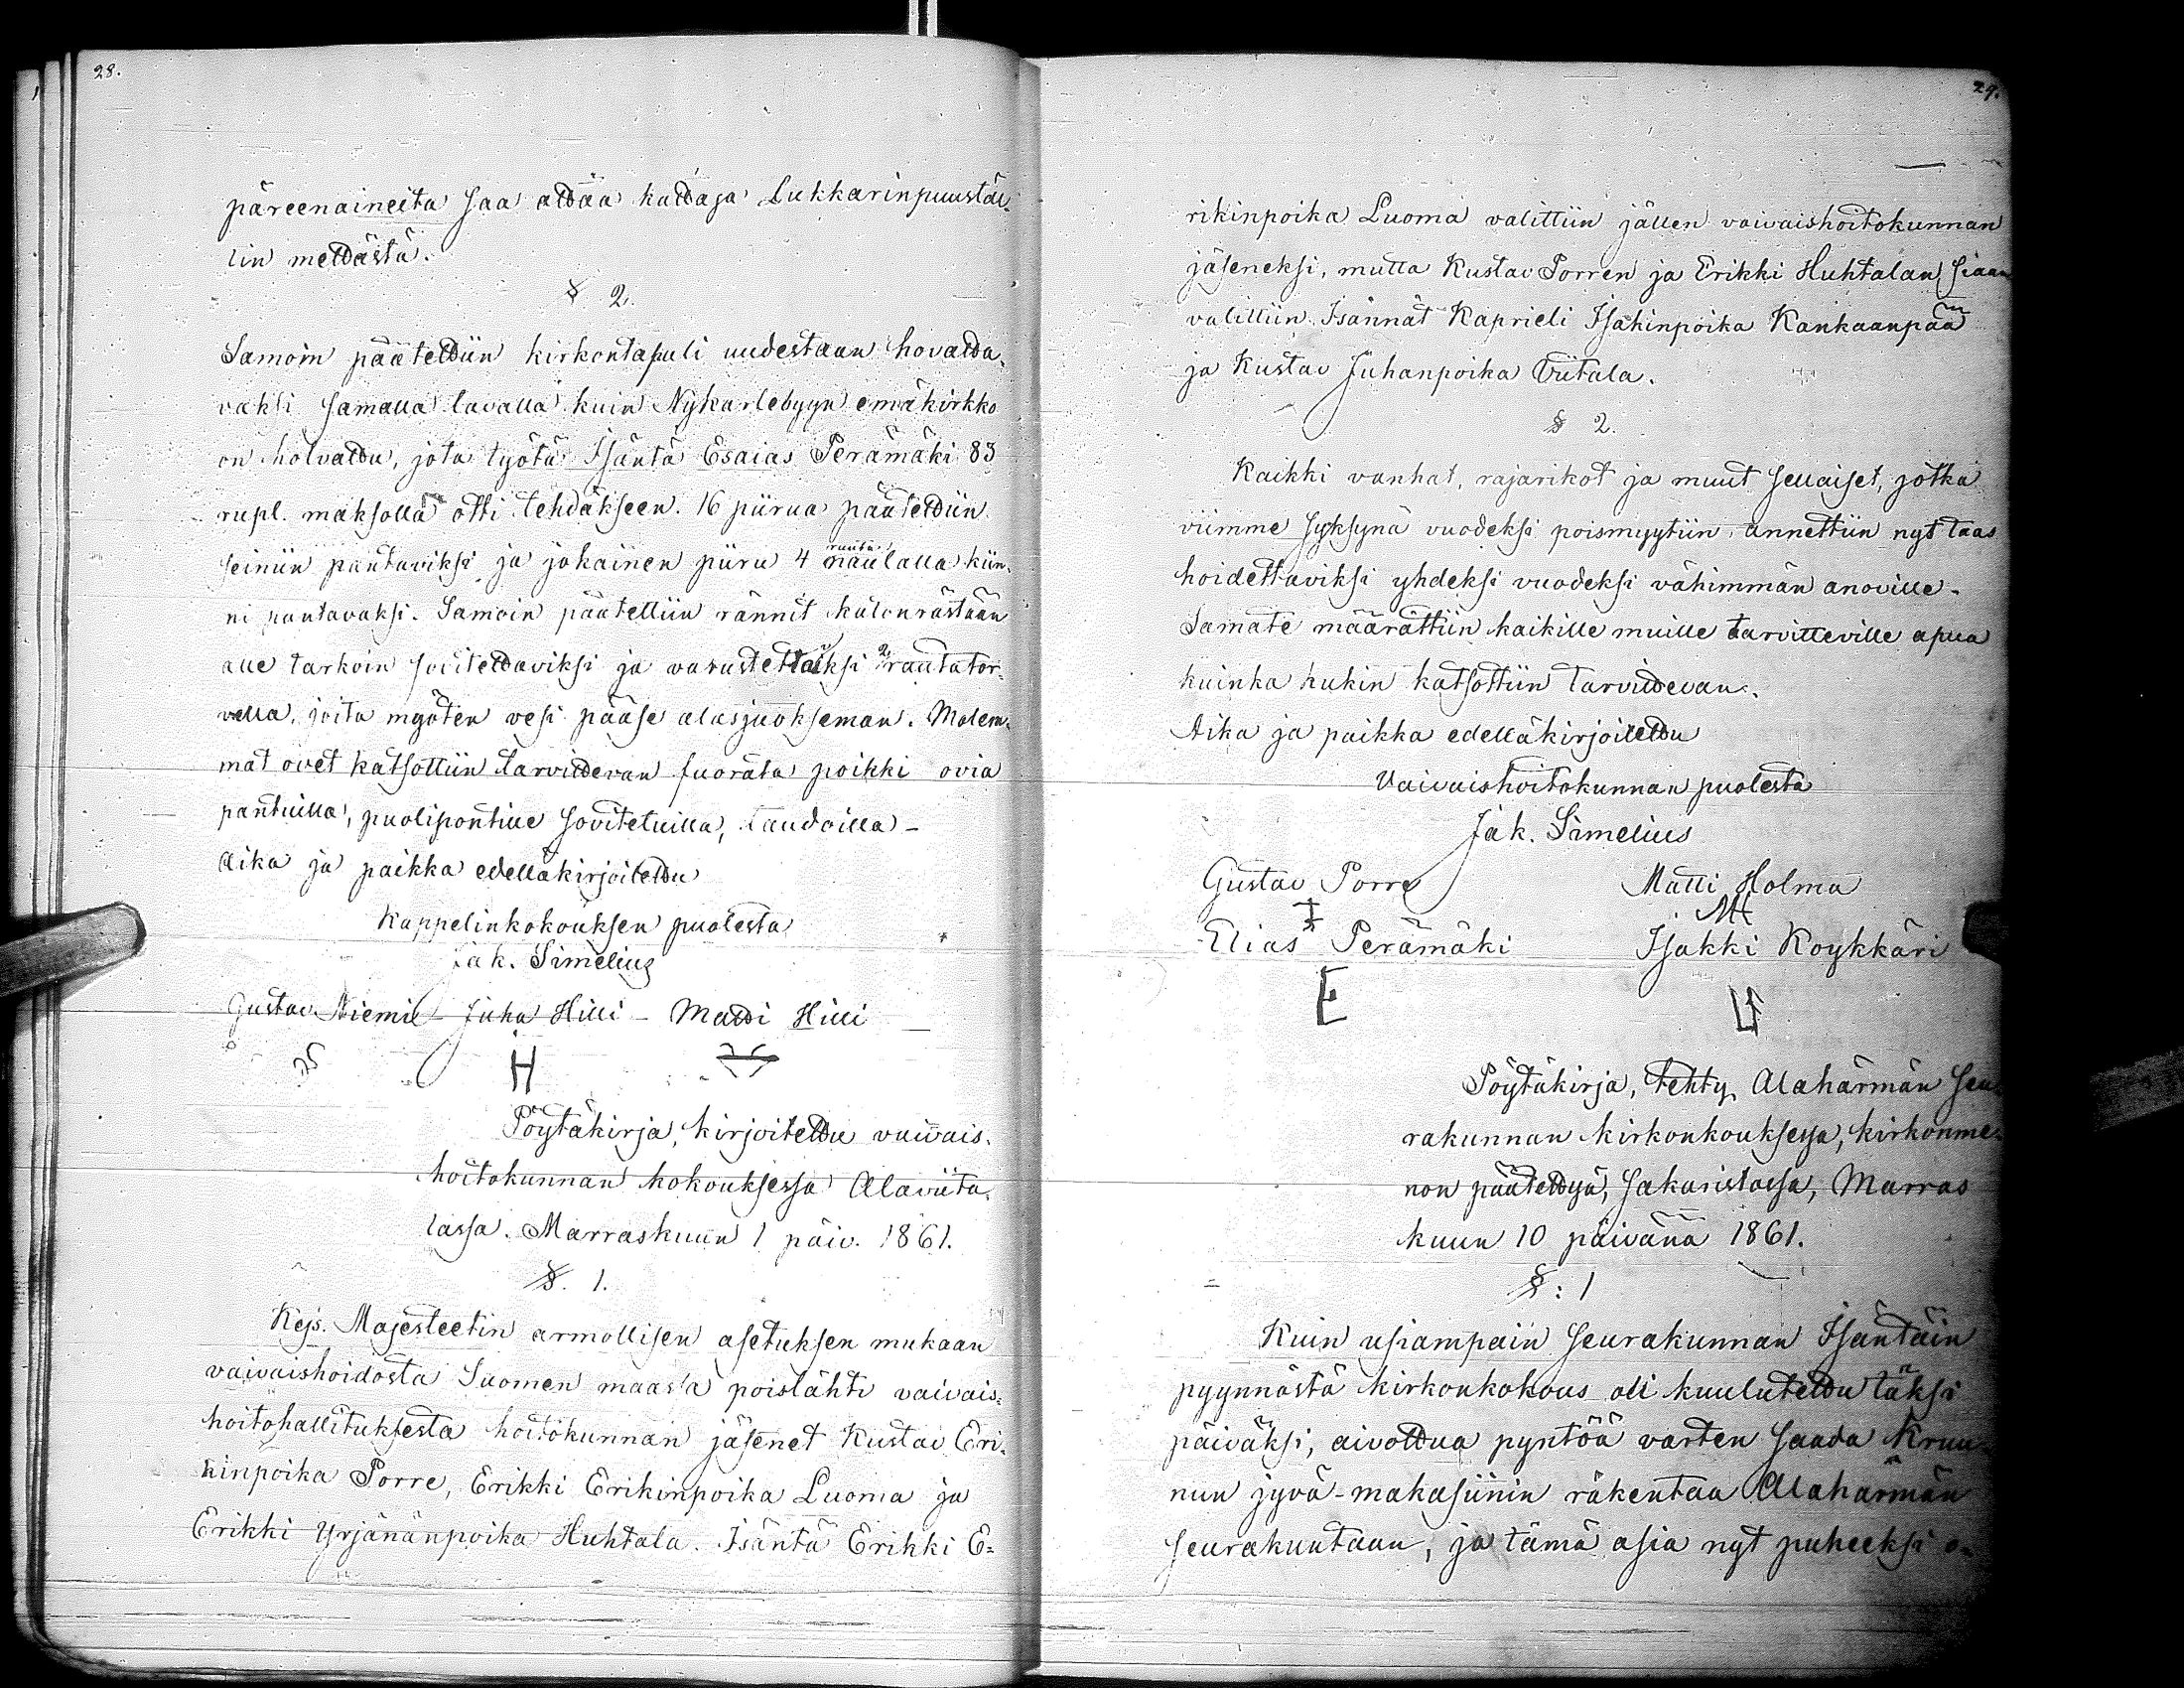 28.
päreenaineita saa ottaa kattaja Lukkarinpuustäl-
lin mettästä.
§ 2.
Samoin päätettiin kirkontapuli uudestaan hovatta-
vaksi samalla tavalla kuin Nykarlebyyn emäkirkko
on holvattu, jota työtä Isäntä Esaias Perämäki 83
rupl. maksolla otti tehdäkseen. 16 piirua päätettiin
seiniin pantaviksi ja jokainen piiru 4 rauta naulalla kiin-
ni pantavaksi. Samoin päätettiin rännit katonrästään
alle tarkoin sovitettaviksi ja varustettaviksi 2 rautator-
vella, joita myöten vesi pääse alasjuokseman. Molem-
mat ovet katsottiin tarvittevan fuorata poikki ovia
pantuilla, puolipontille sovitetuilla, laudoilla -
Aika ja paikka edelläkirjoitettu
Kappelinkokouksen puolesta
Jak. Simelius
Gustav Niemi - Juha Hilli - Matti Hilli
H
Pöytäkirja, kirjoitettu vaivais-
hoitokunnan kokouksessa Alaviita-
lassa. Marraskuun 1 päiv. 1861.
§. 1.
Kejs. Majesteetin armollisen asetuksen mukaan
vaivaishoidosta Suomen maassa poislähti vaivais-
hoitohallituksesta hoitokunnan jäsenet Kustav Eri-
kinpoika Porre, Erikki Erikinpoika Luoma ja
Erikki Yrjänänpoika Huhtala. Isäntä Erikki E-
29.
rikinpoika Luoma valittiin jällen vaivaishoitokunnan
jäseneksi, mutta Kustav Porren ja Erikki Huhtalan siaan
valittiin Isännät Kaprieli Isakinpoika Kankaanpää
ja Kustav Juhanpoika Viitala.
§ 2.
Kaikki vanhat, rajarikot ja muut sellaiset, jotka
viimme syksynä vuodeksi poismyytiin, annettiin nyt taas
hoidettaviksi yhdeksi vuodeksi vähimmän anoville.
Samate määrättiin kaikille muille tarvitteville apua
kuinka kukin katsottiin tarvittevan.
Aika ja paikka edelläkirjoitettu
Vaivaishoitokunnan puolesta
Jak. Simelius
Gustav Porre Matti Holma
Elias Perämäki Isakki Koykkäri
E
Pöytäkirja, tehty Alahärmän seu-
rakunnan kirkonkouksessa, kirkonme-
non päätettyä, sakaristossa, Marras
kuun 10 päivänä 1861.
§: 1
Kuin usiampain seurakunnan Isäntäin
pyynnöstä kirkonkokous oli kuulutettu täksi
päiväksi, aivottua pyntöä varten saada Kruu-
nun jyvä-makasiinin rakentaa Alahärmän
seurakuntaan, ja tämä asia nyt puheeksi o-